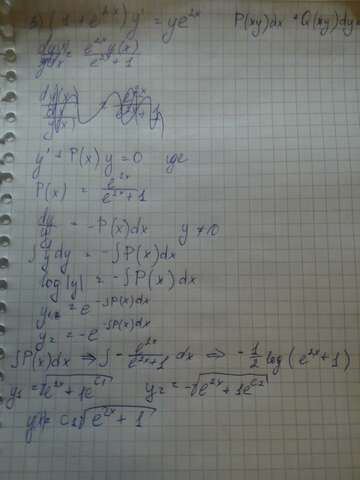 3) (1 + e^{2x}) y' = y e^{2x} P(xy)dx + Q(xy)dy
dy(x)/dx = e^{2x} y(x) / e^{2x} + 1
y' + P(x) y = 0 где
P(x) = e^{2x} / e^{2x} + 1
dy/y = -P(x)dx y ≠ 0
∫ 1/y dy = -∫P(x)dx
log|y| = -∫P(x)dx
y₁ = e^{-∫P(x)dx}
y₂ = -e^{-∫P(x)dx}
∫P(x)dx ⇒ ∫ - e^{2x} / e^{2x}+1 dx ⇒ -1/2 log(e^{2x}+1)
y₁ = √e^{2x} + 1 e^{C₁} y₂ = -√e^{2x} + 1 e^{C₂}
y = C₁ √e^{2x} + 1